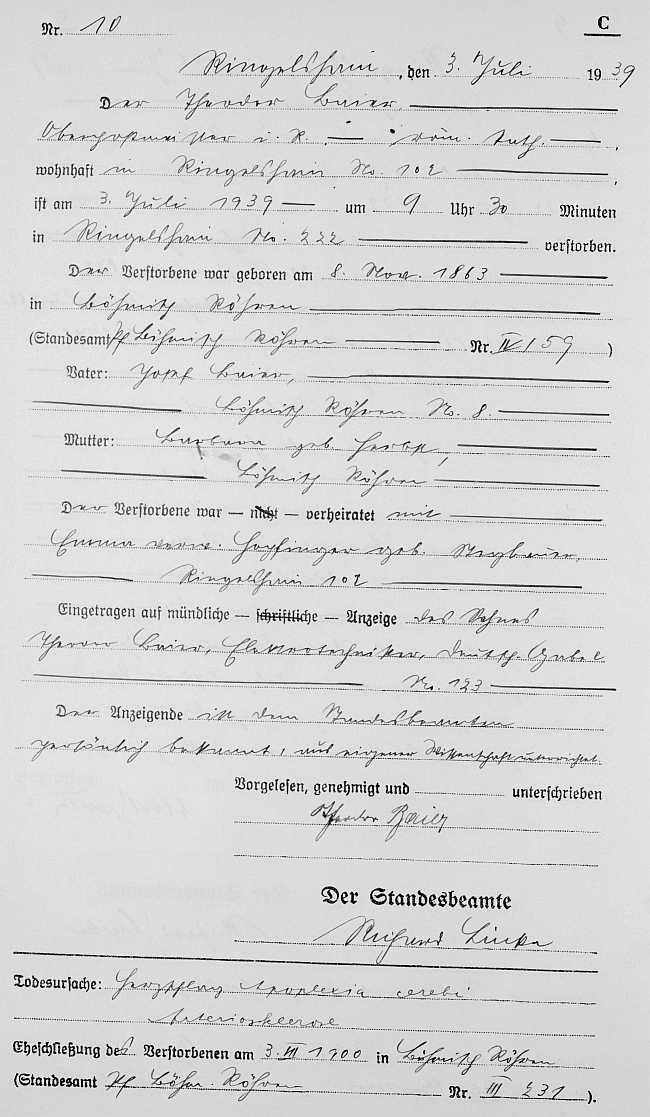 C
Nr. 10
Ringelshain, den 3. Juli 1939
Der Theodor Baier
Oberpostmeister i. R. röm. kath.
wohnhaft in Ringelshain No. 102
ist am 3. Juli 1939 um 9 Uhr 30 Minuten
in Ringelshain No. 222 verstorben.
Der Verstorbene war geboren am 8. Nov. 1863
in Böhmisch Röhren
(Standesamt Pf Böhmisch Röhren Nr. IV 159)
Vater: Josef Baier,
Böhmisch Röhren No. 8.
Mutter: Barbara geb.
Böhmisch Röhren
Der Verstorbene war — nicht — verheiratet mit
Emma verw. Hopfinger geb.
Ringelshain 102
Eingetragen auf mündliche — schriftliche — Anzeige des Sohnes
Theodor Baier, Elektrotechniker, Deutsch Gabel
No. 123
Der Anzeigende ist dem Standesbeamten
persönlich bekannt, aus eigener Wissenschaft unterrichtet.
Vorgelesen, genehmigt und unterschrieben
Theodor Baier
Der Standesbeamte
Richard Linke
Todesursache: Apoplexia cerebi
Arteriosklerose
Eheschließung des Verstorbenen am 3. VII 1900 in Böhmisch Röhren
(Standesamt Pf Böhm. Röhren Nr. III 231).